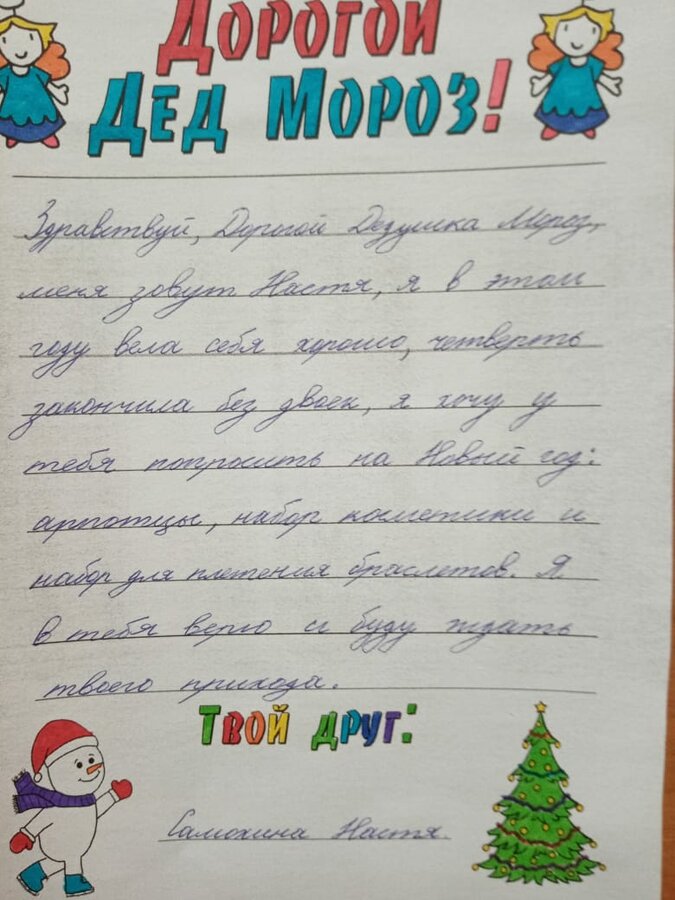 Дорогой
Дед Мороз!
Здравствуй, Дорогой Дедушка Мороз,
меня зовут Настя, я в этом
году вела себя хорошо, четверть
закончила без двоек, я хочу у
тебя попросить на Новый год:
арпотцы, набор косметики и
набор для плетения браслетов. Я
в тебя верю и буду ждать
твоего прихода.
Твой друг:
Самохина Настя.